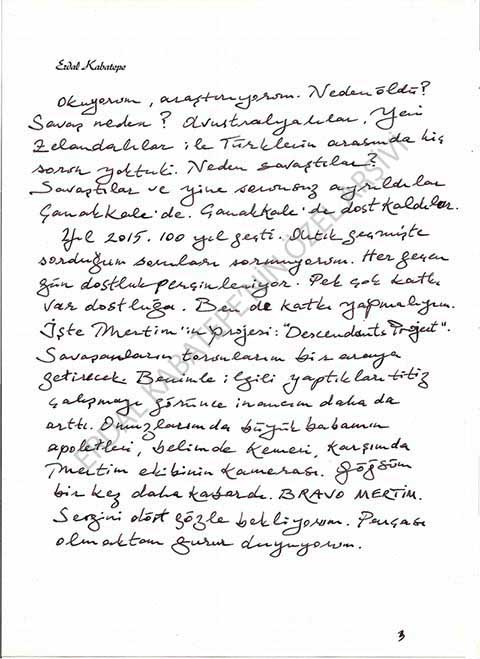 Erdal Kabatepe
Okuyorum, araştırıyorum. Neden öldü?
Savaş neden? Avustralyalılar, Yeni
Zelandalılar ile Türklerin arasında hiç
sorun yoktuki. Neden savaştılar?
Savaştılar ve yine sorunsuz ayrıldılar
Çanakkale'de. Çanakkale'de dost kaldılar.
Yıl 2015. 100 yıl geçti. Artık geçmişte
sorduğum soruları sormuyorum. Her geçen
gün dostluk perçinleniyor. Pek çok katkı
var dostluğa. Ben de katkı yapmalıyım.
İşte Mertim'in projesi: "Descendants Project".
Savaşanların torunlarını bir araya
getirecek. Benimle ilgili yaptıkları titiz
çalışmayı görünce inancım daha da
arttı. Omuzlarımda büyük babamın
apoletleri, belimde kemeri, karşımda
Mertim ekibinin kamerası. Göğsüm
bir kez daha kabardı. BRAVO MERTİM.
Sergini dört gözle bekliyorum. Parçası
olmaktan gurur duyuyorum.
ERDAL KABATEPE'NİN ÖZEL ARŞİVİ
3